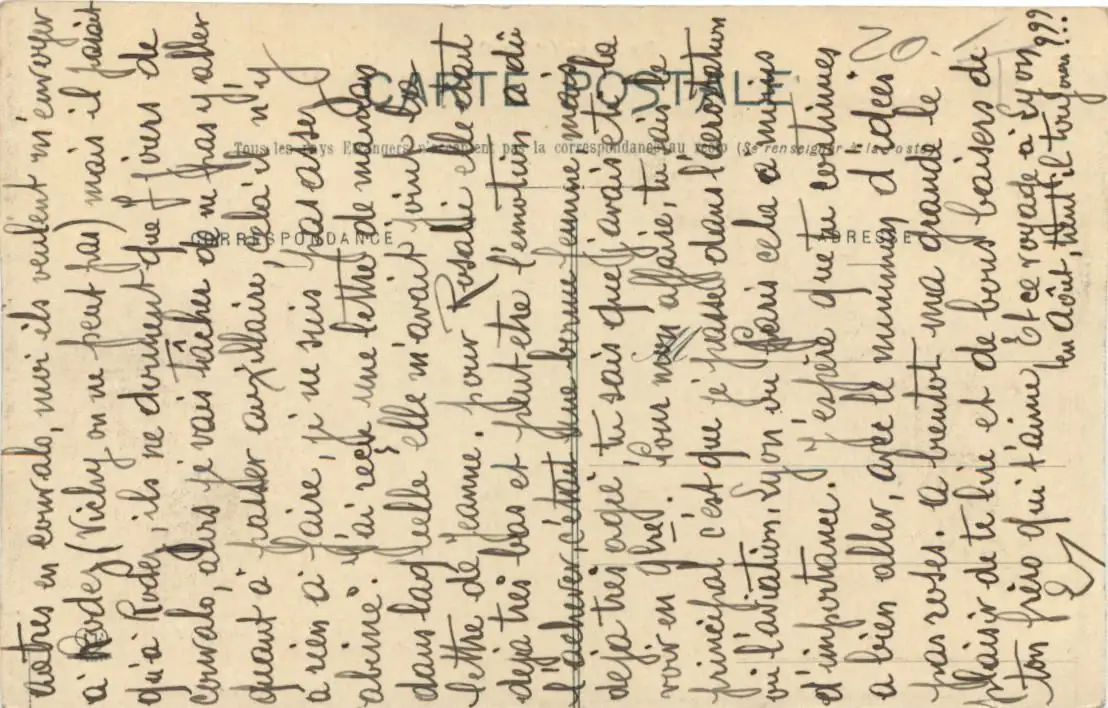 CARTE POSTALE
Tous les Pays Etrangers n'acceptent pas la correspondance au recto (Se renseigner à la Poste)
CORRESPONDANCE
ADRESSE
autres en convalo, moi ils veulent m'envoyer
à Rodez (Vichy on ne peut pas) mais il parait
qu'à Rodez, ils ne donnent que 7 jours de
convalo, alors je vais tâcher de ne pas y aller
quant à passer auxiliaire, celà il n'y
a rien à faire, je ne suis pas assez
abimé. J'ai reçu une lettre de maman
dans laquelle elle m'avait joint la
lettre de Jeanne. pour Rosalie elle était
dejà très bas et peut etre l'emotion a dû
l'achever, c'était une bonne femme mais
dejà très agé, tu sais que j'avais eté la
voir en Pour mon affaire, tu sais le
principal c'est que je passe dans l'aérostation
ou l'aviation. Lyon ou Paris cela a moins
d'importance. J'espère que tu continues
a bien aller, avec le minimum d'idées
pas roses. a bientot ma grande le
plaisir de te lire et de bons baisers de
ton frèro qui t'aime Et ce voyage à Lyon
en Août, tient il toujours???